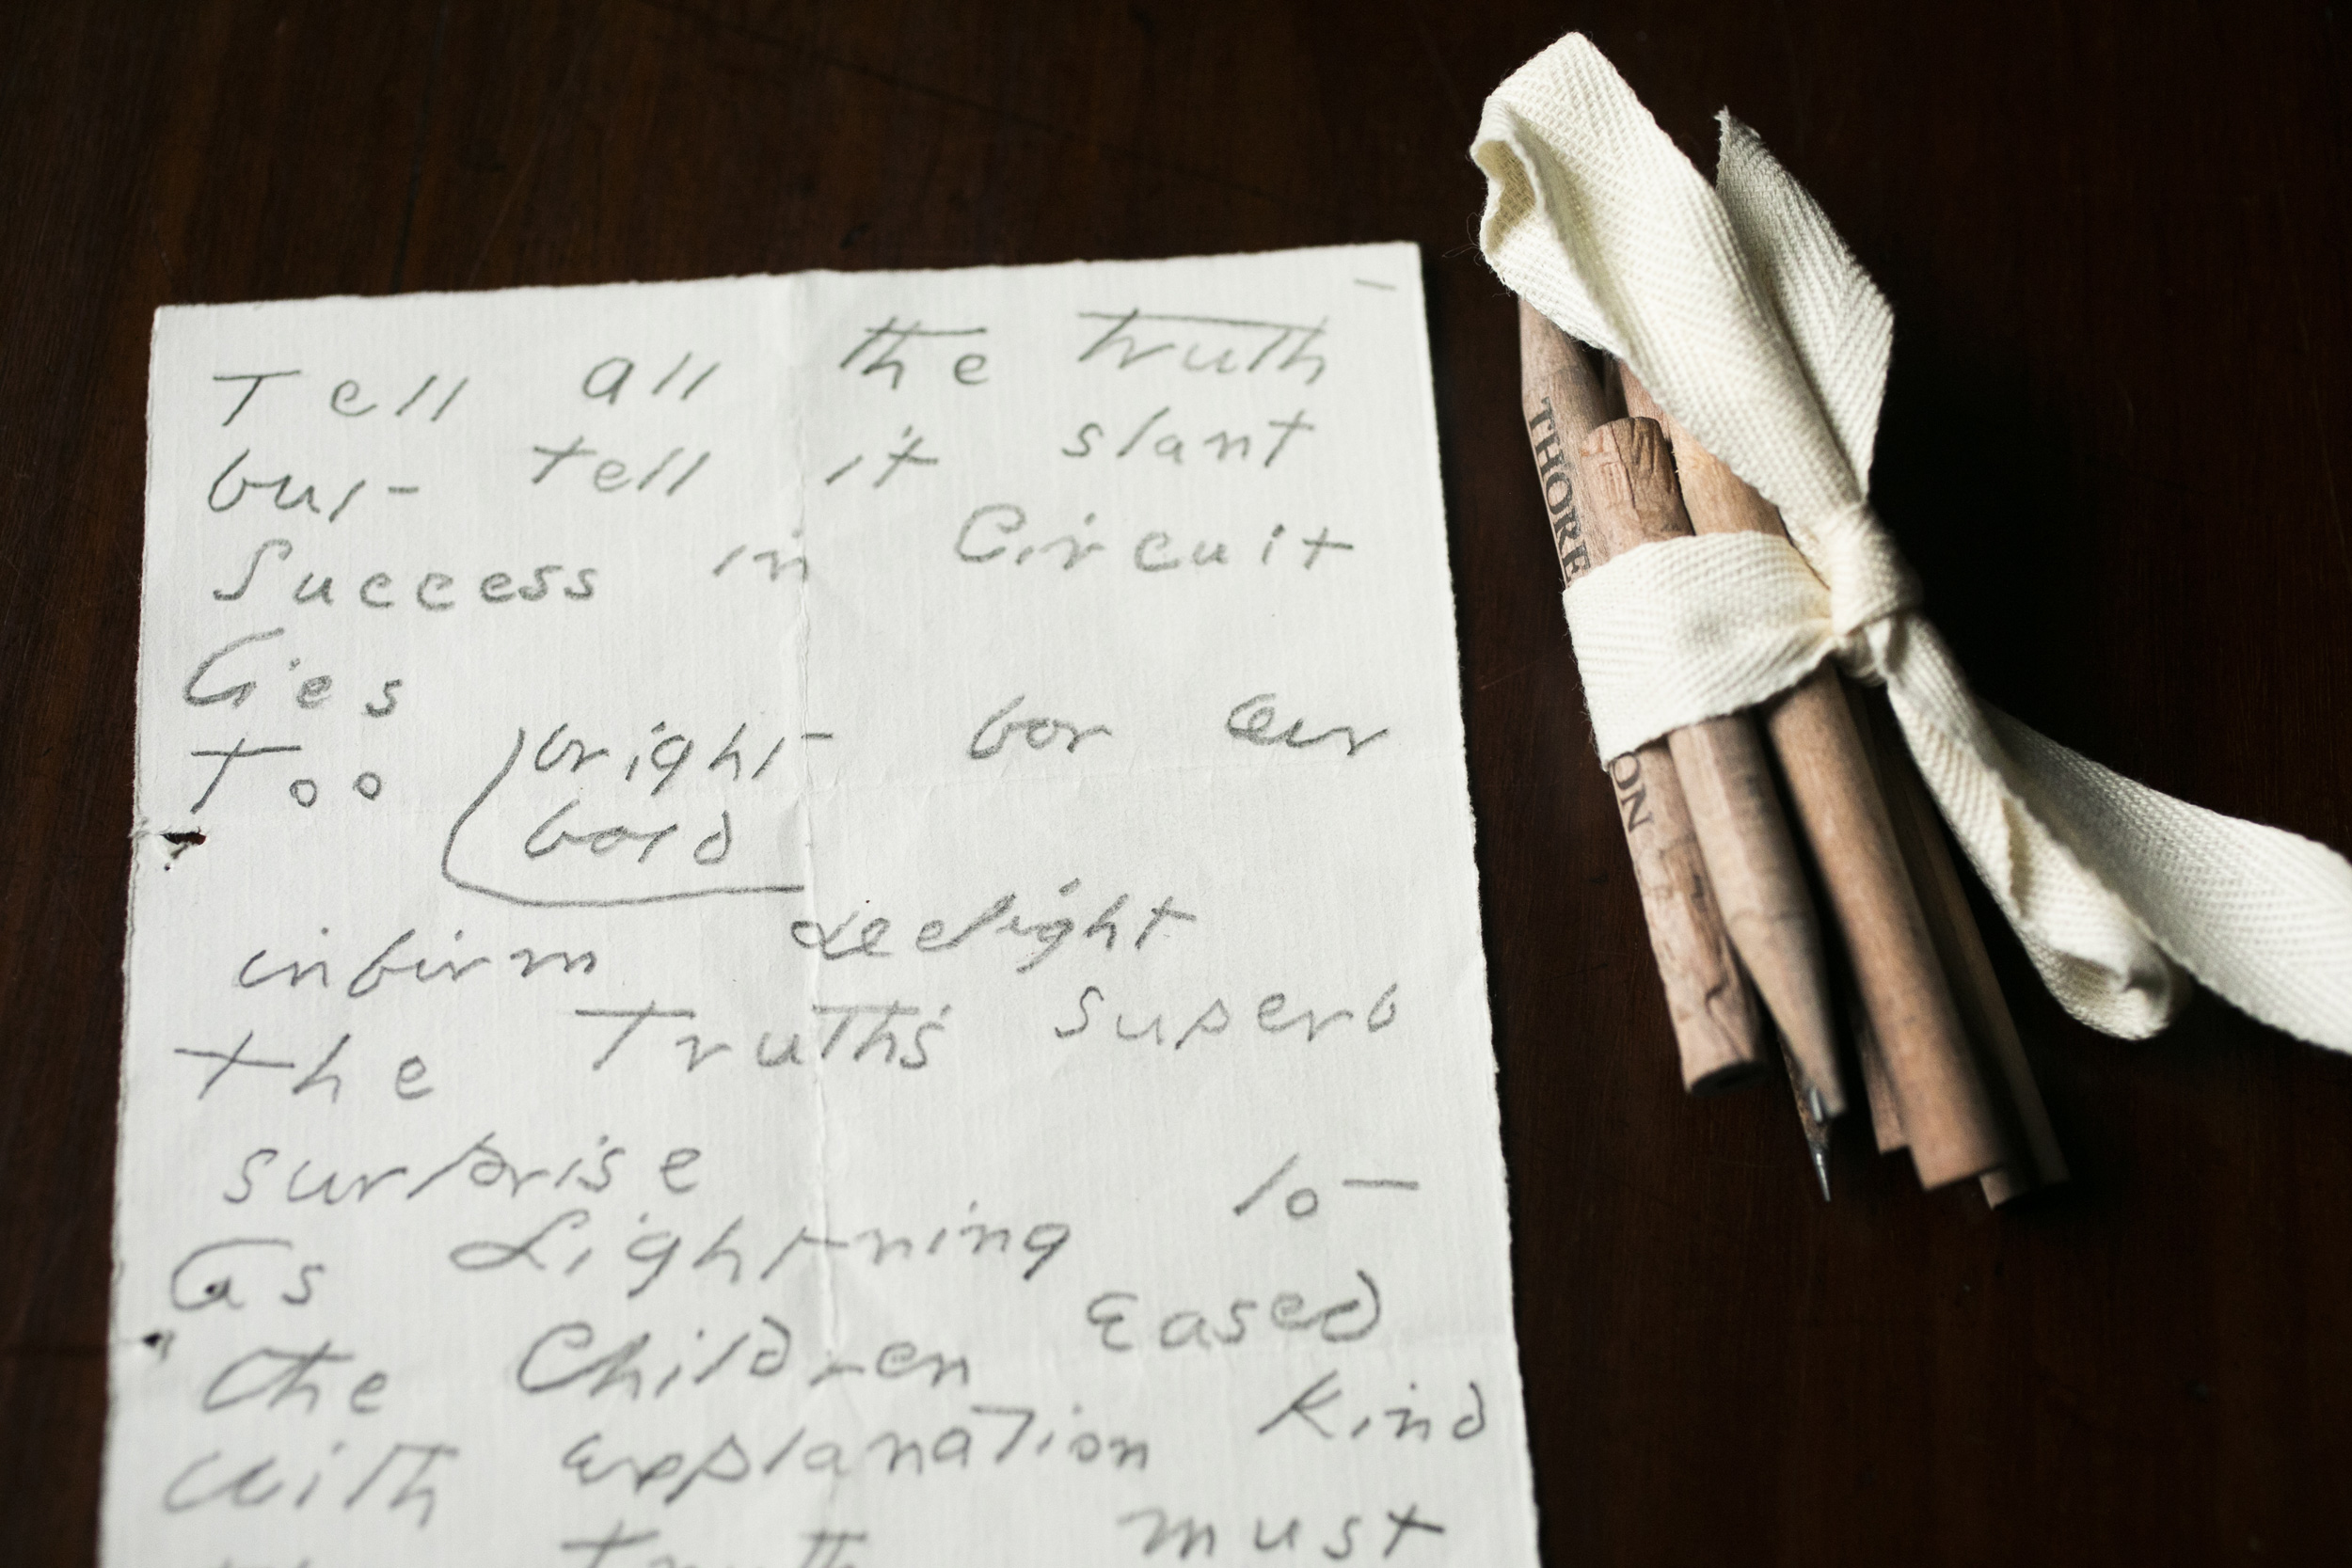 Tell all the truth
but tell it slant
Success in Circuit
lies
Too bright for our
bold
infirm Delight
The Truth's superb
surprise
As Lightning to
the Children eased
With explanation kind
The Truth must
THORE
ON